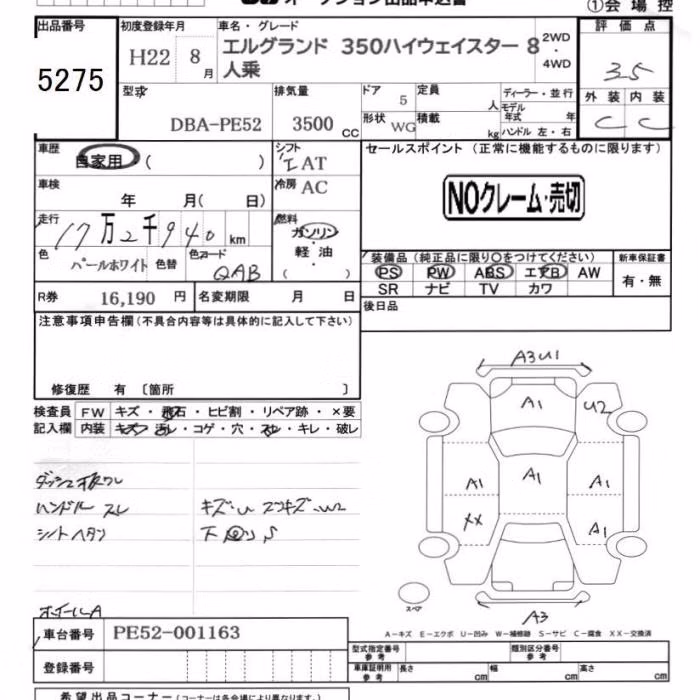 オークション出品申込書
①会場控
出品番号
5275
初度登録年月
H22 8月
車名・グレード
エルグランド 350ハイウェイスター 8人乗
2WD
・
4WD
評価点
3.5
外装 内装
C C
型式
DBA-PE52
排気量
3500 CC
ドア 5
形状 WG
定員 人
積載 kg
ディーラー・並行
モデル年式 年
ハンドル 左・右
車歴
自家用 ( )
シフト
I AT
冷房 AC
車検
年 月( 日)
走行
17万2千940 km
燃料
ガソリン
・
軽油
( )
色 パールホワイト 色替
色コード QAB
R券 16,190 円
名変期限 月 日
セールスポイント (正常に機能するものに限ります)
NOクレーム・売切
装備品 (純正品に限り○をつけてください)
PS PW ABS エアB AW
SR ナビ TV カワ
新車保証書
有・無
後日品
注意事項申告欄 (不具合内容等は具体的に記入して下さい)
修復歴 有 〔箇所 〕
検査員記入欄
FW キズ・飛石・ヒビ割・リペア跡・×要
内装 キズ・汚レ・コゲ・穴・スレ・キレ・破レ
ハンドル スレ
シートヘタリ
キズ・U
下回り S
ホイールA
A3 U1
A1
U2
A1
A1
A1
XX
A1
A3
スペア
A-キズ E-エクボ U-凹み W-補修跡 S-サビ C-腐食 XX-交換済
車台番号 PE52-001163
登録番号
型式指定番号
参考
類別区分番号
参考
車庫証明用
参考
長さ cm
幅 cm
高さ cm
希望出品コーナー (コーナーは各会場により異なります。)